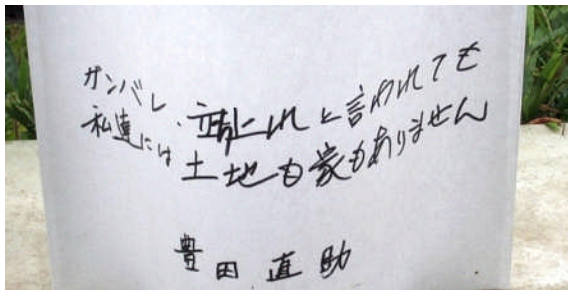 ガンバレ、立ち上れと言われても
私達には土地も家もありません
豊田直助